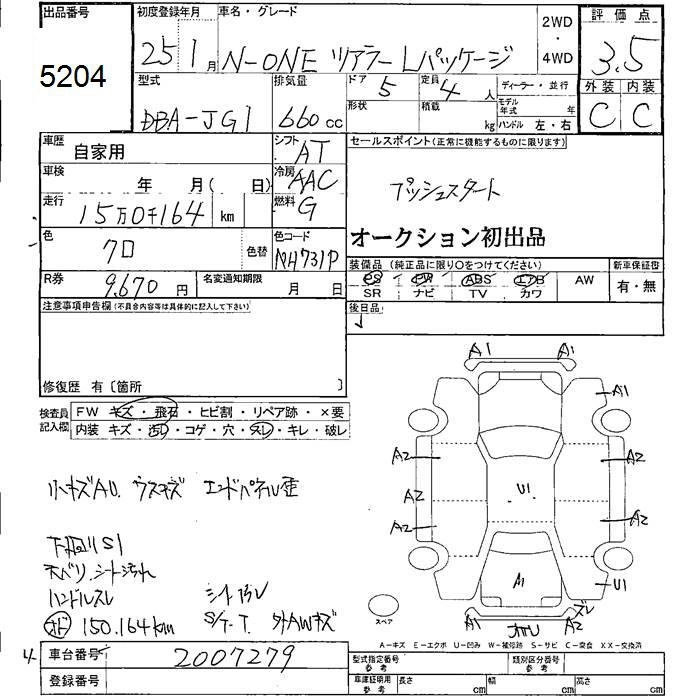 出品番号
5204
初度登録年月
25 1 月
車名・グレード
N-ONE ツアラーLパッケージ
2WD
・
4WD
評価点
3.5
外装 内装
C C
型式
DBA-JG1
排気量
660 cc
ドア
5
定員
4 人
形状
積載
kg
ディーラー・並行
モデル年式 年
ハンドル 左・右
車歴
自家用
シフト
AT
車検
年 月( 日)
冷房
AAC
走行
15万0千164 km
燃料
G
色
クロ
色替
色コード
NH731P
R券
9,670 円
名変通知期限
月 日
セールスポイント(正常に機能するものに限ります)
プッシュスタート
オークション初出品
装備品(純正品に限り○をつけてください)
PS PW ABS エアB AW
SR ナビ TV カワ
新車保証書
有・無
後日品
注意事項申告欄(不具合内容等は具体的に記入して下さい)
修復歴 有〔箇所 〕
検査員記入欄
FW キズ・飛石・ヒビ割・リペア跡・×要
内装 キズ・汚れ・コゲ・穴・スレ・キレ・破レ
小キズAU. ウスキズ エンドパネル歪
下廻りS1
天バリ、シート汚れ
ハンドルスレ
150.164km
S/T-T. 外AWキズ
A1 A1
A1
A2 A2
A2 U1
A2 A2
A1 U1
A1 A2 ズレ
スペア
A-キズ E-エクボ U-凹み W-補修跡 S-サビ C-腐食 XX-交換済
4
車台番号
2007279
登録番号
型式指定番号
参考
類別区分番号
参考
車庫証明用
参考
長さ cm 幅 cm 高さ cm